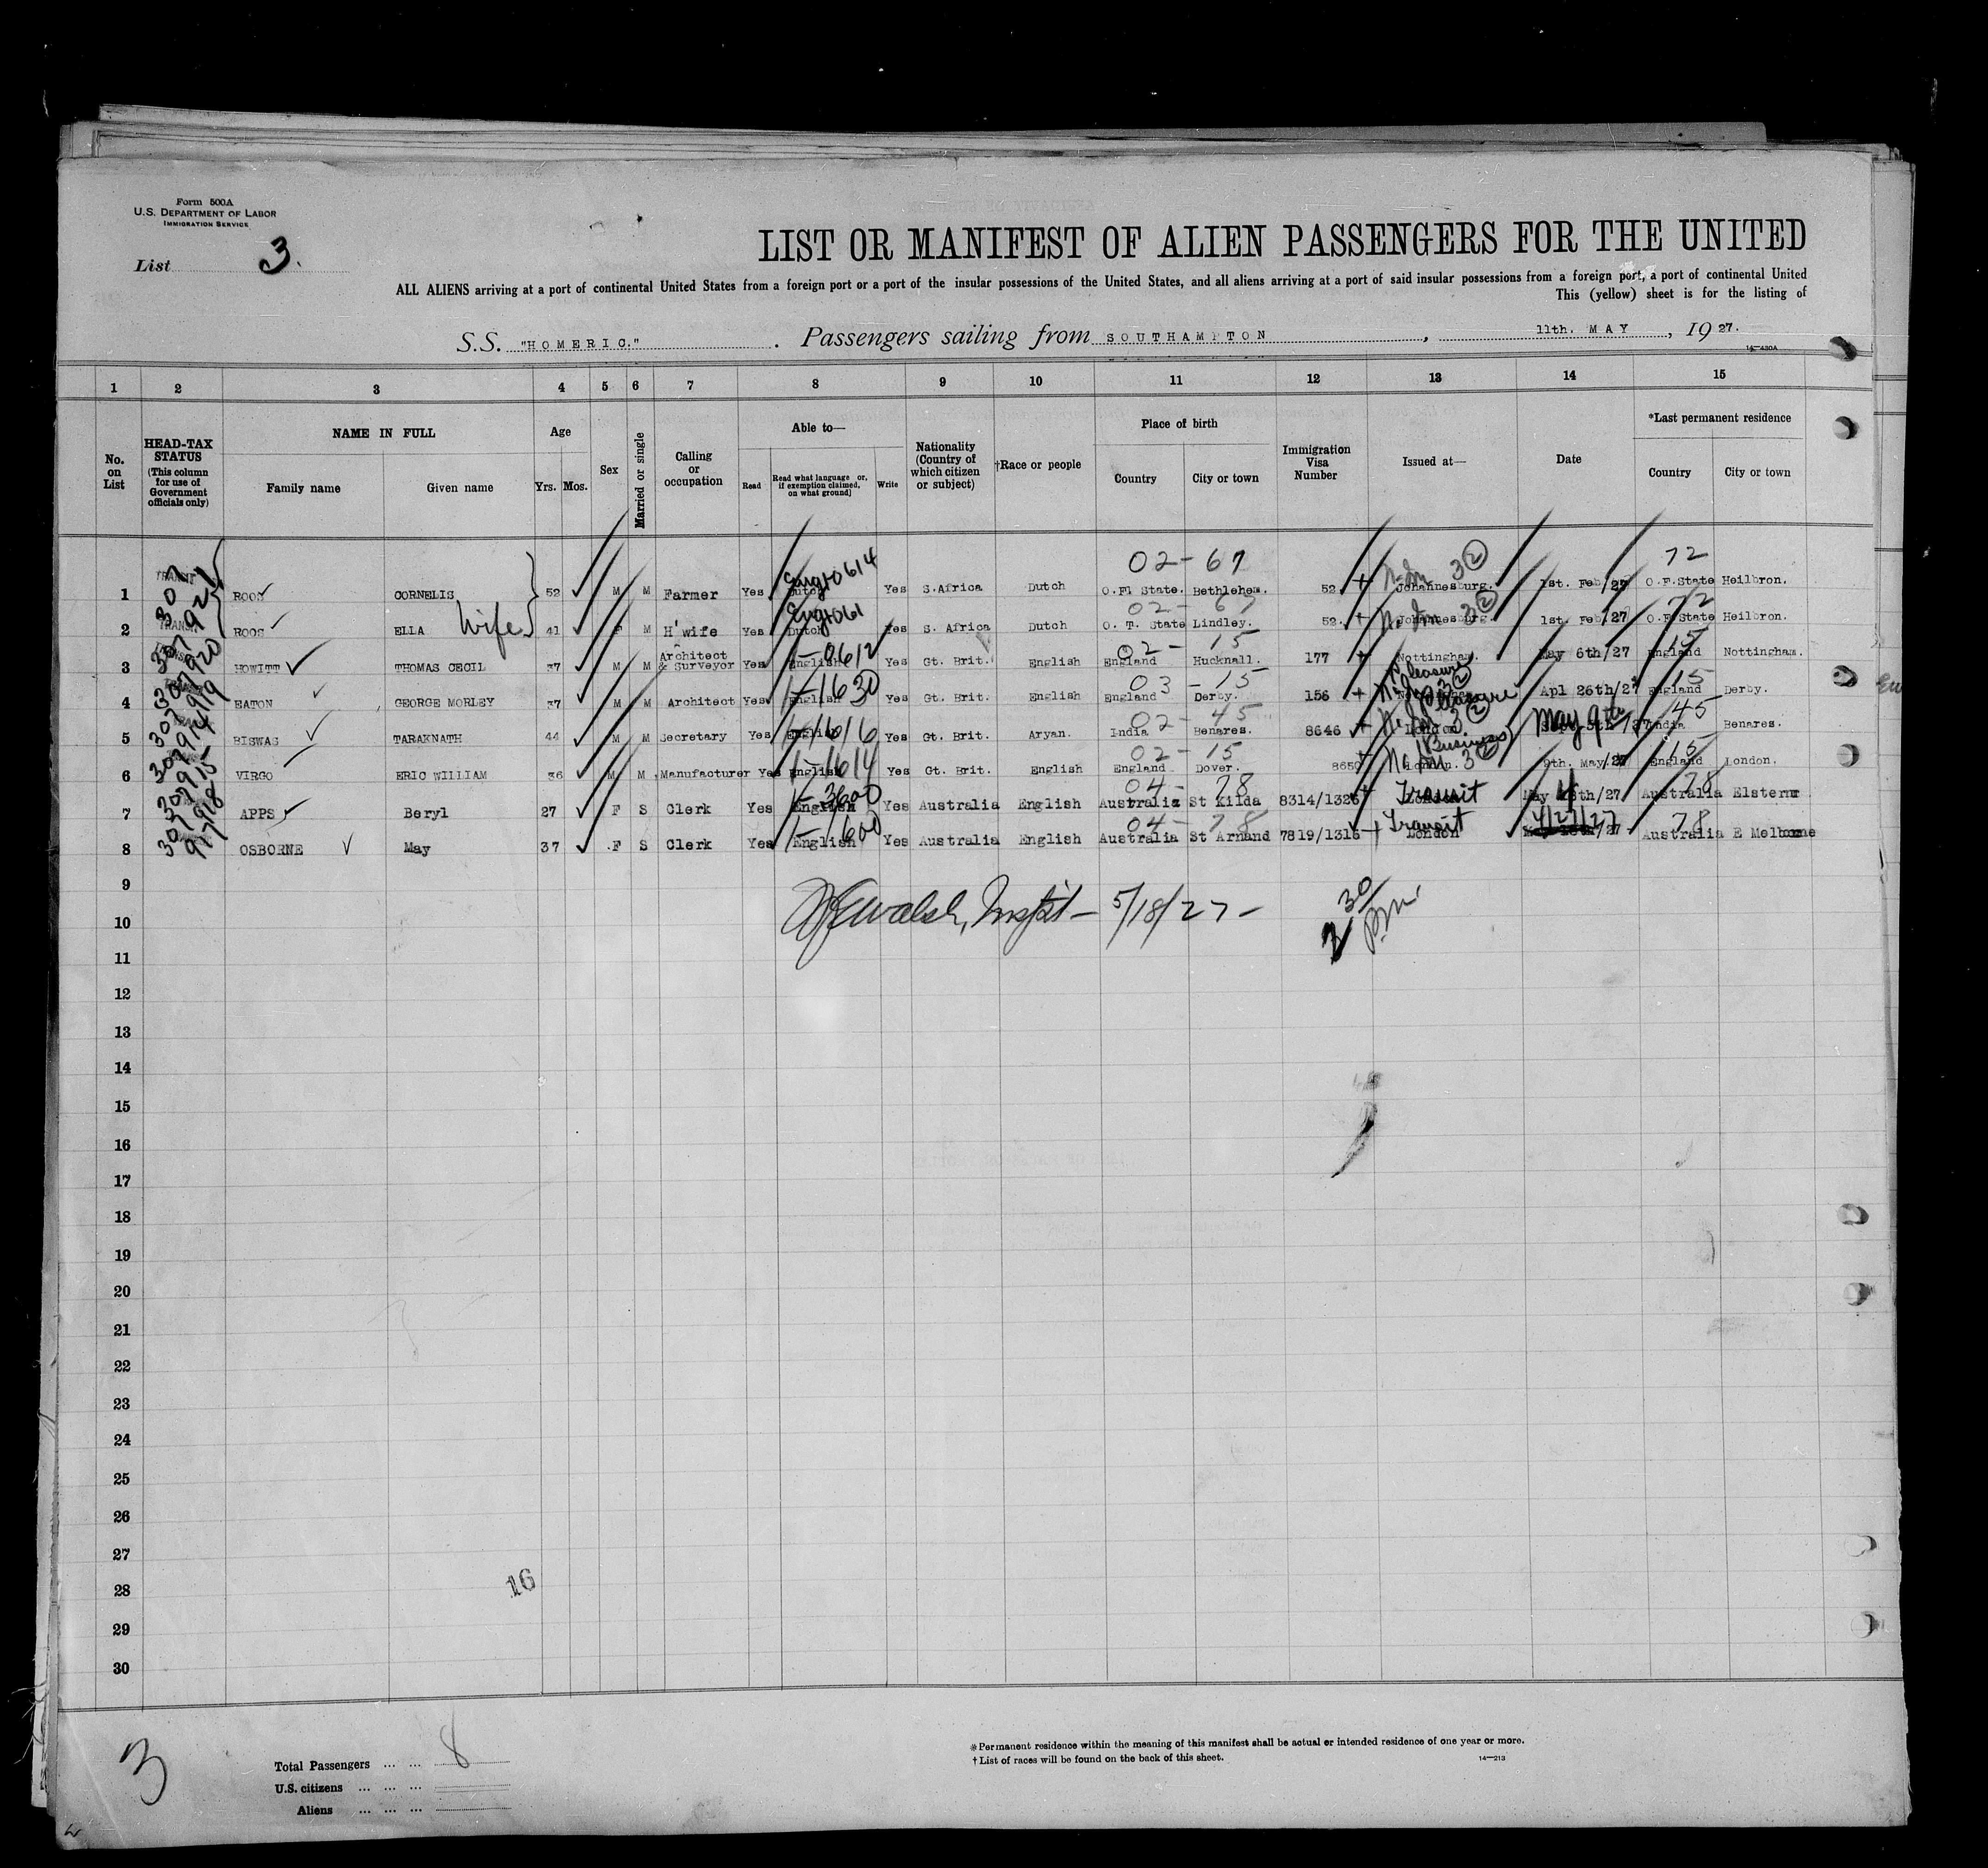 Form 500A
U.S. DEPARTMENT OF LABOR
IMMIGRATION SERVICE
List 3.
LIST OR MANIFEST OF ALIEN PASSENGERS FOR THE UNITED
ALL ALIENS arriving at a port of continental United States from a foreign port or a port of the insular possessions of the United States, and all aliens arriving at a port of said insular possessions from a foreign port, a port of continental United
This (yellow) sheet is for the listing of
S.S. "HOMERIC." . Passengers sailing from SOUTHAMPTON , 11th. MAY , 1927.
14—430A
1 2 3 4 5 6 7 8 9 10 11 12 13 14 15
No. on List
HEAD-TAX STATUS (This column for use of Government officials only)
NAME IN FULL
Family name Given name
Age
Yrs. Mos.
Sex
Married or single
Calling or occupation
Able to—
Read
Read what language or, if exemption claimed, on what ground)
Write
Nationality (Country of which citizen or subject)
†Race or people
Place of birth
Country City or town
Immigration Visa Number
Issued at—
Date
*Last permanent residence
Country City or town
02-67 72
1 TRANSIT ROOS CORNELIS 52 M M Farmer Yes Dutch Yes S.Africa Dutch O.F. State. Bethlehem. 52. Johannesburg. 1st. Feb/27 O.F.State Heilbron.
02-67 72
2 ROOS ELLA Wife 41 F M H'wife Yes Dutch Yes S. Africa Dutch O. T. State Lindley. 52. Johannesburg. 1st. Feb/27 O.F.State Heilbron.
02-15 15
3 HOWITT THOMAS CECIL 37 M M Architect & Surveyor Yes English Yes Gt. Brit. English England Hucknall. 177 Nottingham. May 6th/27 England Nottingham.
03-15 Pleasure 15
4 EATON GEORGE MORLEY 37 M M Architect Yes English Yes Gt. Brit. English England Derby. 156 Apl 26th/27 England Derby.
02-45 Pleasure 45
5 BISWAS TARAKNATH 44 M M Secretary Yes English Yes Gt. Brit. Aryan. India Benares. 8646 London. May 9th India Benares.
02-15 Business 15
6 VIRGO ERIC WILLIAM 36 M M Manufacturer Yes English Yes Gt. Brit. English England Dover. 8650 London. 9th. May/27 England London.
04-78 78
7 APPS Beryl 27 F S Clerk Yes English Yes Australia English Australia St Kilda 8314/1326 Transit Australia
04-78 78
8 OSBORNE May 37 F S Clerk Yes English Yes Australia English Australia St Arnaud 7819/1315 London Transit 4/27/27 Australia E Melborne
9
10 Walsh, Inspt- 5/18/27- 30/
11
12
13
14
15
16
17
18
19
20
21
22
23
24
25
26
27
28 16
29
30
3
Total Passengers ... ... 8
U.S. citizens ... ... ...
Aliens ... ... ...
*Permanent residence within the meaning of this manifest shall be actual or intended residence of one year or more.
†List of races will be found on the back of this sheet.
14—213